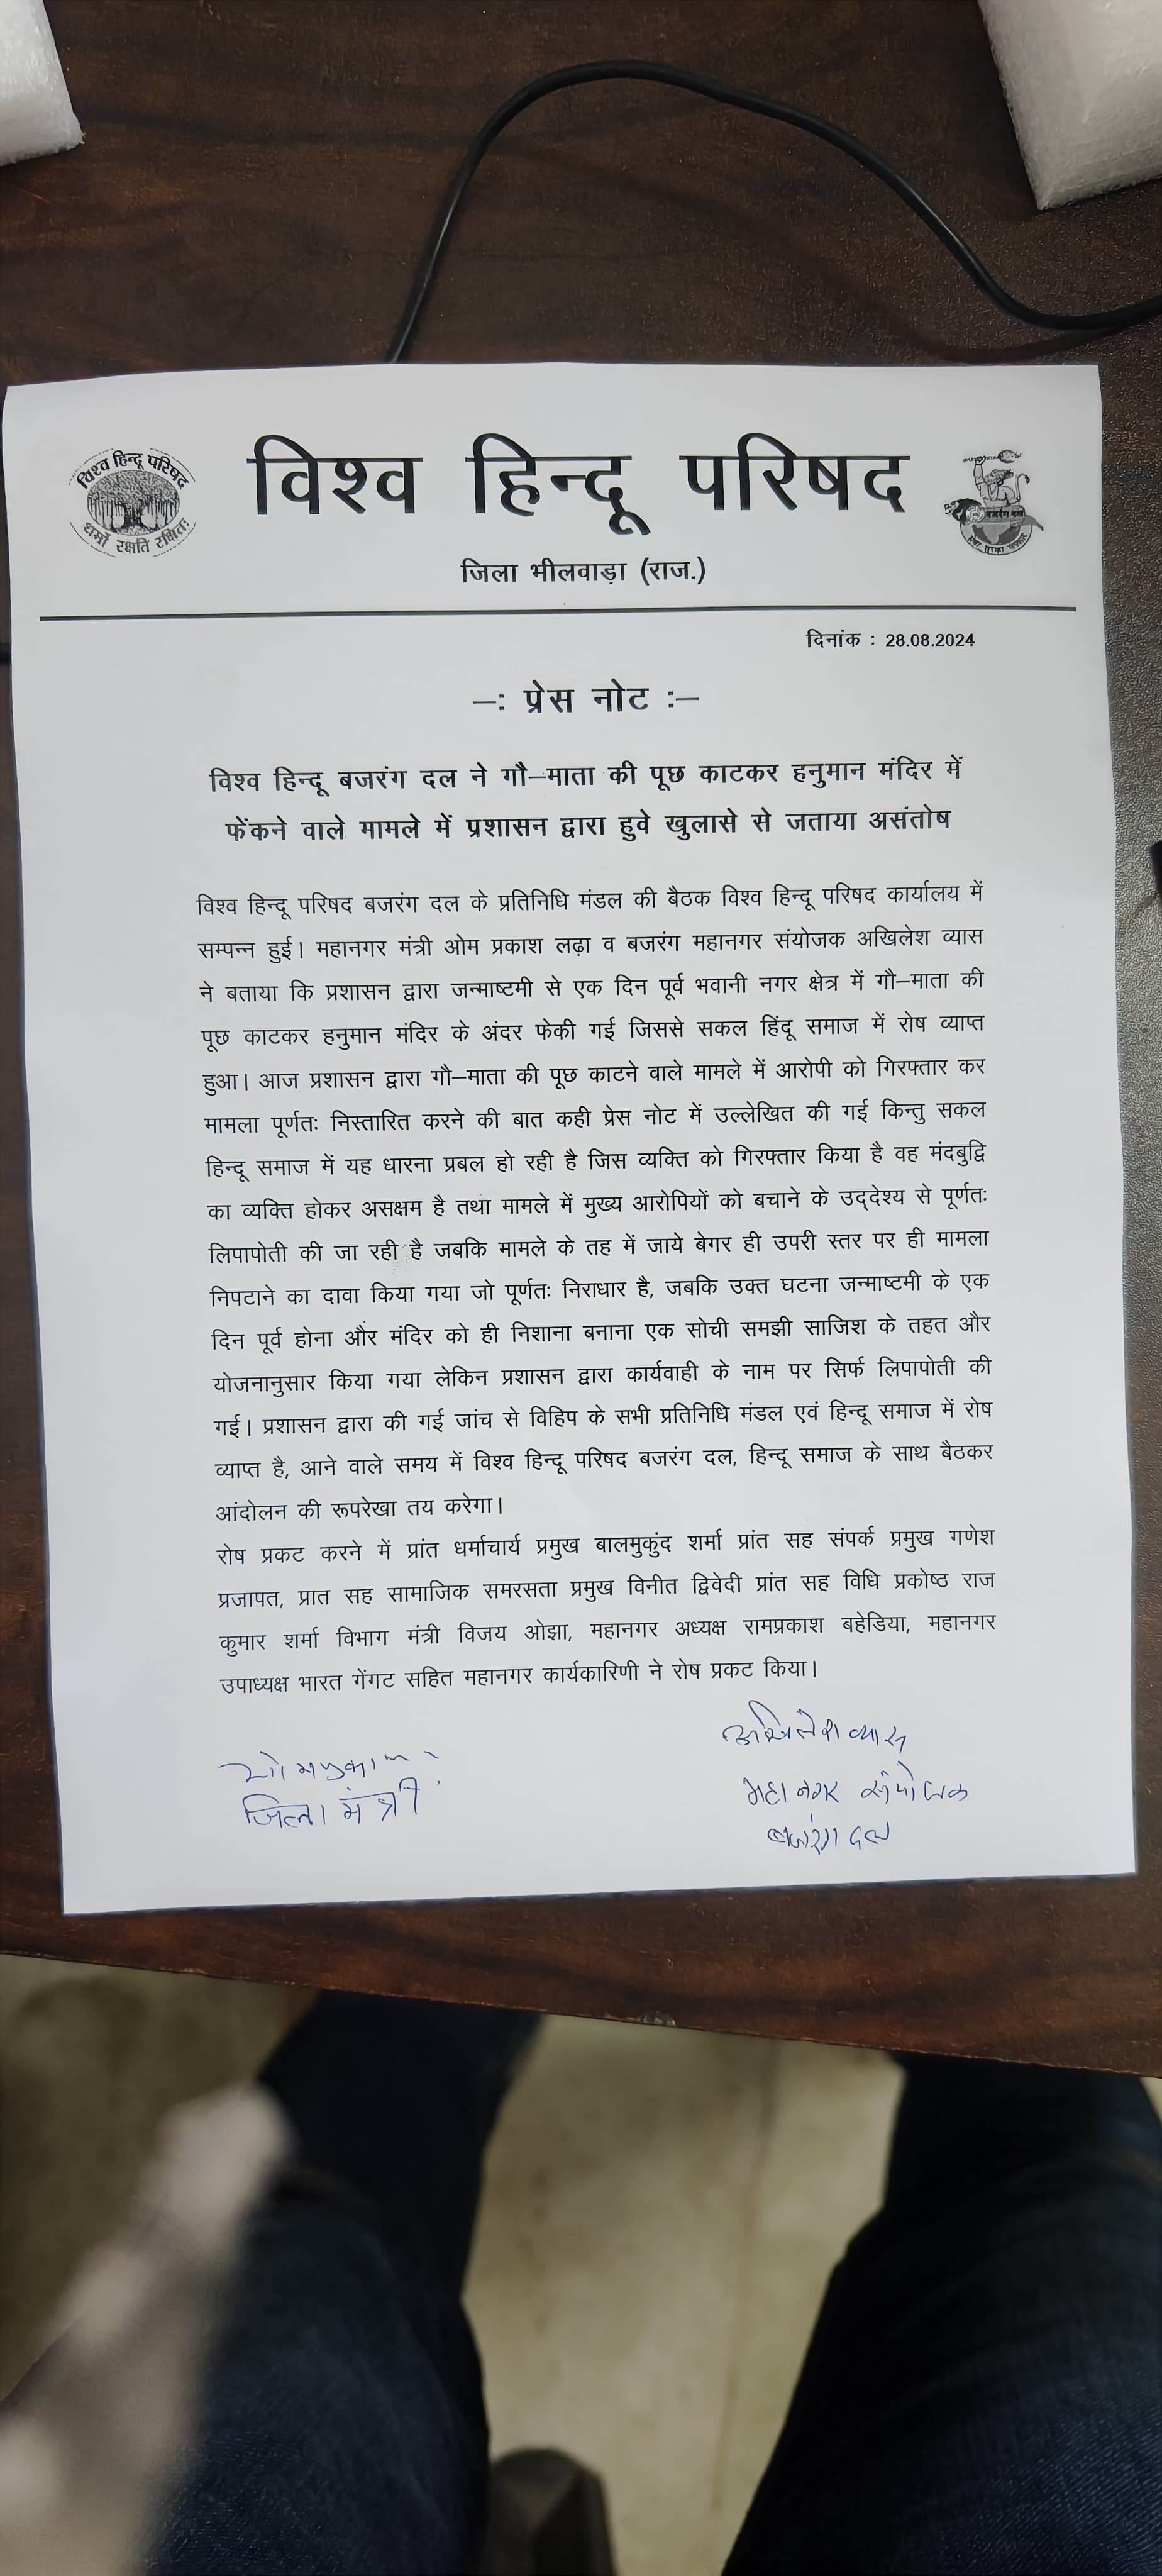 विश्व हिन्दू परिषद
धर्मो रक्षति रक्षितः
विश्व हिन्दू परिषद
बजरंग दल
सेवा सुरक्षा संस्कार
जिला भीलवाड़ा (राज.)
दिनांक : 28.08.2024
–: प्रेस नोट :–
विश्व हिन्दू बजरंग दल ने गौ–माता की पूछ काटकर हनुमान मंदिर में
फेंकने वाले मामले में प्रशासन द्वारा हुवे खुलासे से जताया असंतोष
विश्व हिन्दू परिषद बजरंग दल के प्रतिनिधि मंडल की बैठक विश्व हिन्दू परिषद कार्यालय में
सम्पन्न हुई। महानगर मंत्री ओम प्रकाश लढ़ा व बजरंग महानगर संयोजक अखिलेश व्यास
ने बताया कि प्रशासन द्वारा जन्माष्टमी से एक दिन पूर्व भवानी नगर क्षेत्र में गौ–माता की
पूछ काटकर हनुमान मंदिर के अंदर फेकी गई जिससे सकल हिंदू समाज में रोष व्याप्त
हुआ। आज प्रशासन द्वारा गौ–माता की पूछ काटने वाले मामले में आरोपी को गिरफ्तार कर
मामला पूर्णतः निस्तारित करने की बात कही प्रेस नोट में उल्लेखित की गई किन्तु सकल
हिन्दू समाज में यह धारना प्रबल हो रही है जिस व्यक्ति को गिरफ्तार किया है वह मंदबुद्वि
का व्यक्ति होकर असक्षम है तथा मामले में मुख्य आरोपियों को बचाने के उद्देश्य से पूर्णतः
लिपापोती की जा रही है जबकि मामले के तह में जाये बेगर ही उपरी स्तर पर ही मामला
निपटाने का दावा किया गया जो पूर्णतः निराधार है, जबकि उक्त घटना जन्माष्टमी के एक
दिन पूर्व होना और मंदिर को ही निशाना बनाना एक सोची समझी साजिश के तहत और
योजनानुसार किया गया लेकिन प्रशासन द्वारा कार्यवाही के नाम पर सिर्फ लिपापोती की
गई। प्रशासन द्वारा की गई जांच से विहिप के सभी प्रतिनिधि मंडल एवं हिन्दू समाज में रोष
व्याप्त है, आने वाले समय में विश्व हिन्दू परिषद बजरंग दल, हिन्दू समाज के साथ बैठकर
आंदोलन की रूपरेखा तय करेगा।
रोष प्रकट करने में प्रांत धर्माचार्य प्रमुख बालमुकुंद शर्मा प्रांत सह संपर्क प्रमुख गणेश
प्रजापत, प्रात सह सामाजिक समरसता प्रमुख विनीत द्विवेदी प्रांत सह विधि प्रकोष्ठ राज
कुमार शर्मा विभाग मंत्री विजय ओझा, महानगर अध्यक्ष रामप्रकाश बहेडिया, महानगर
उपाध्यक्ष भारत गेंगट सहित महानगर कार्यकारिणी ने रोष प्रकट किया।
अखिलेश व्यास
महानगर संयोजक
बजरंग दल
ओमप्रकाश
जिला मंत्री